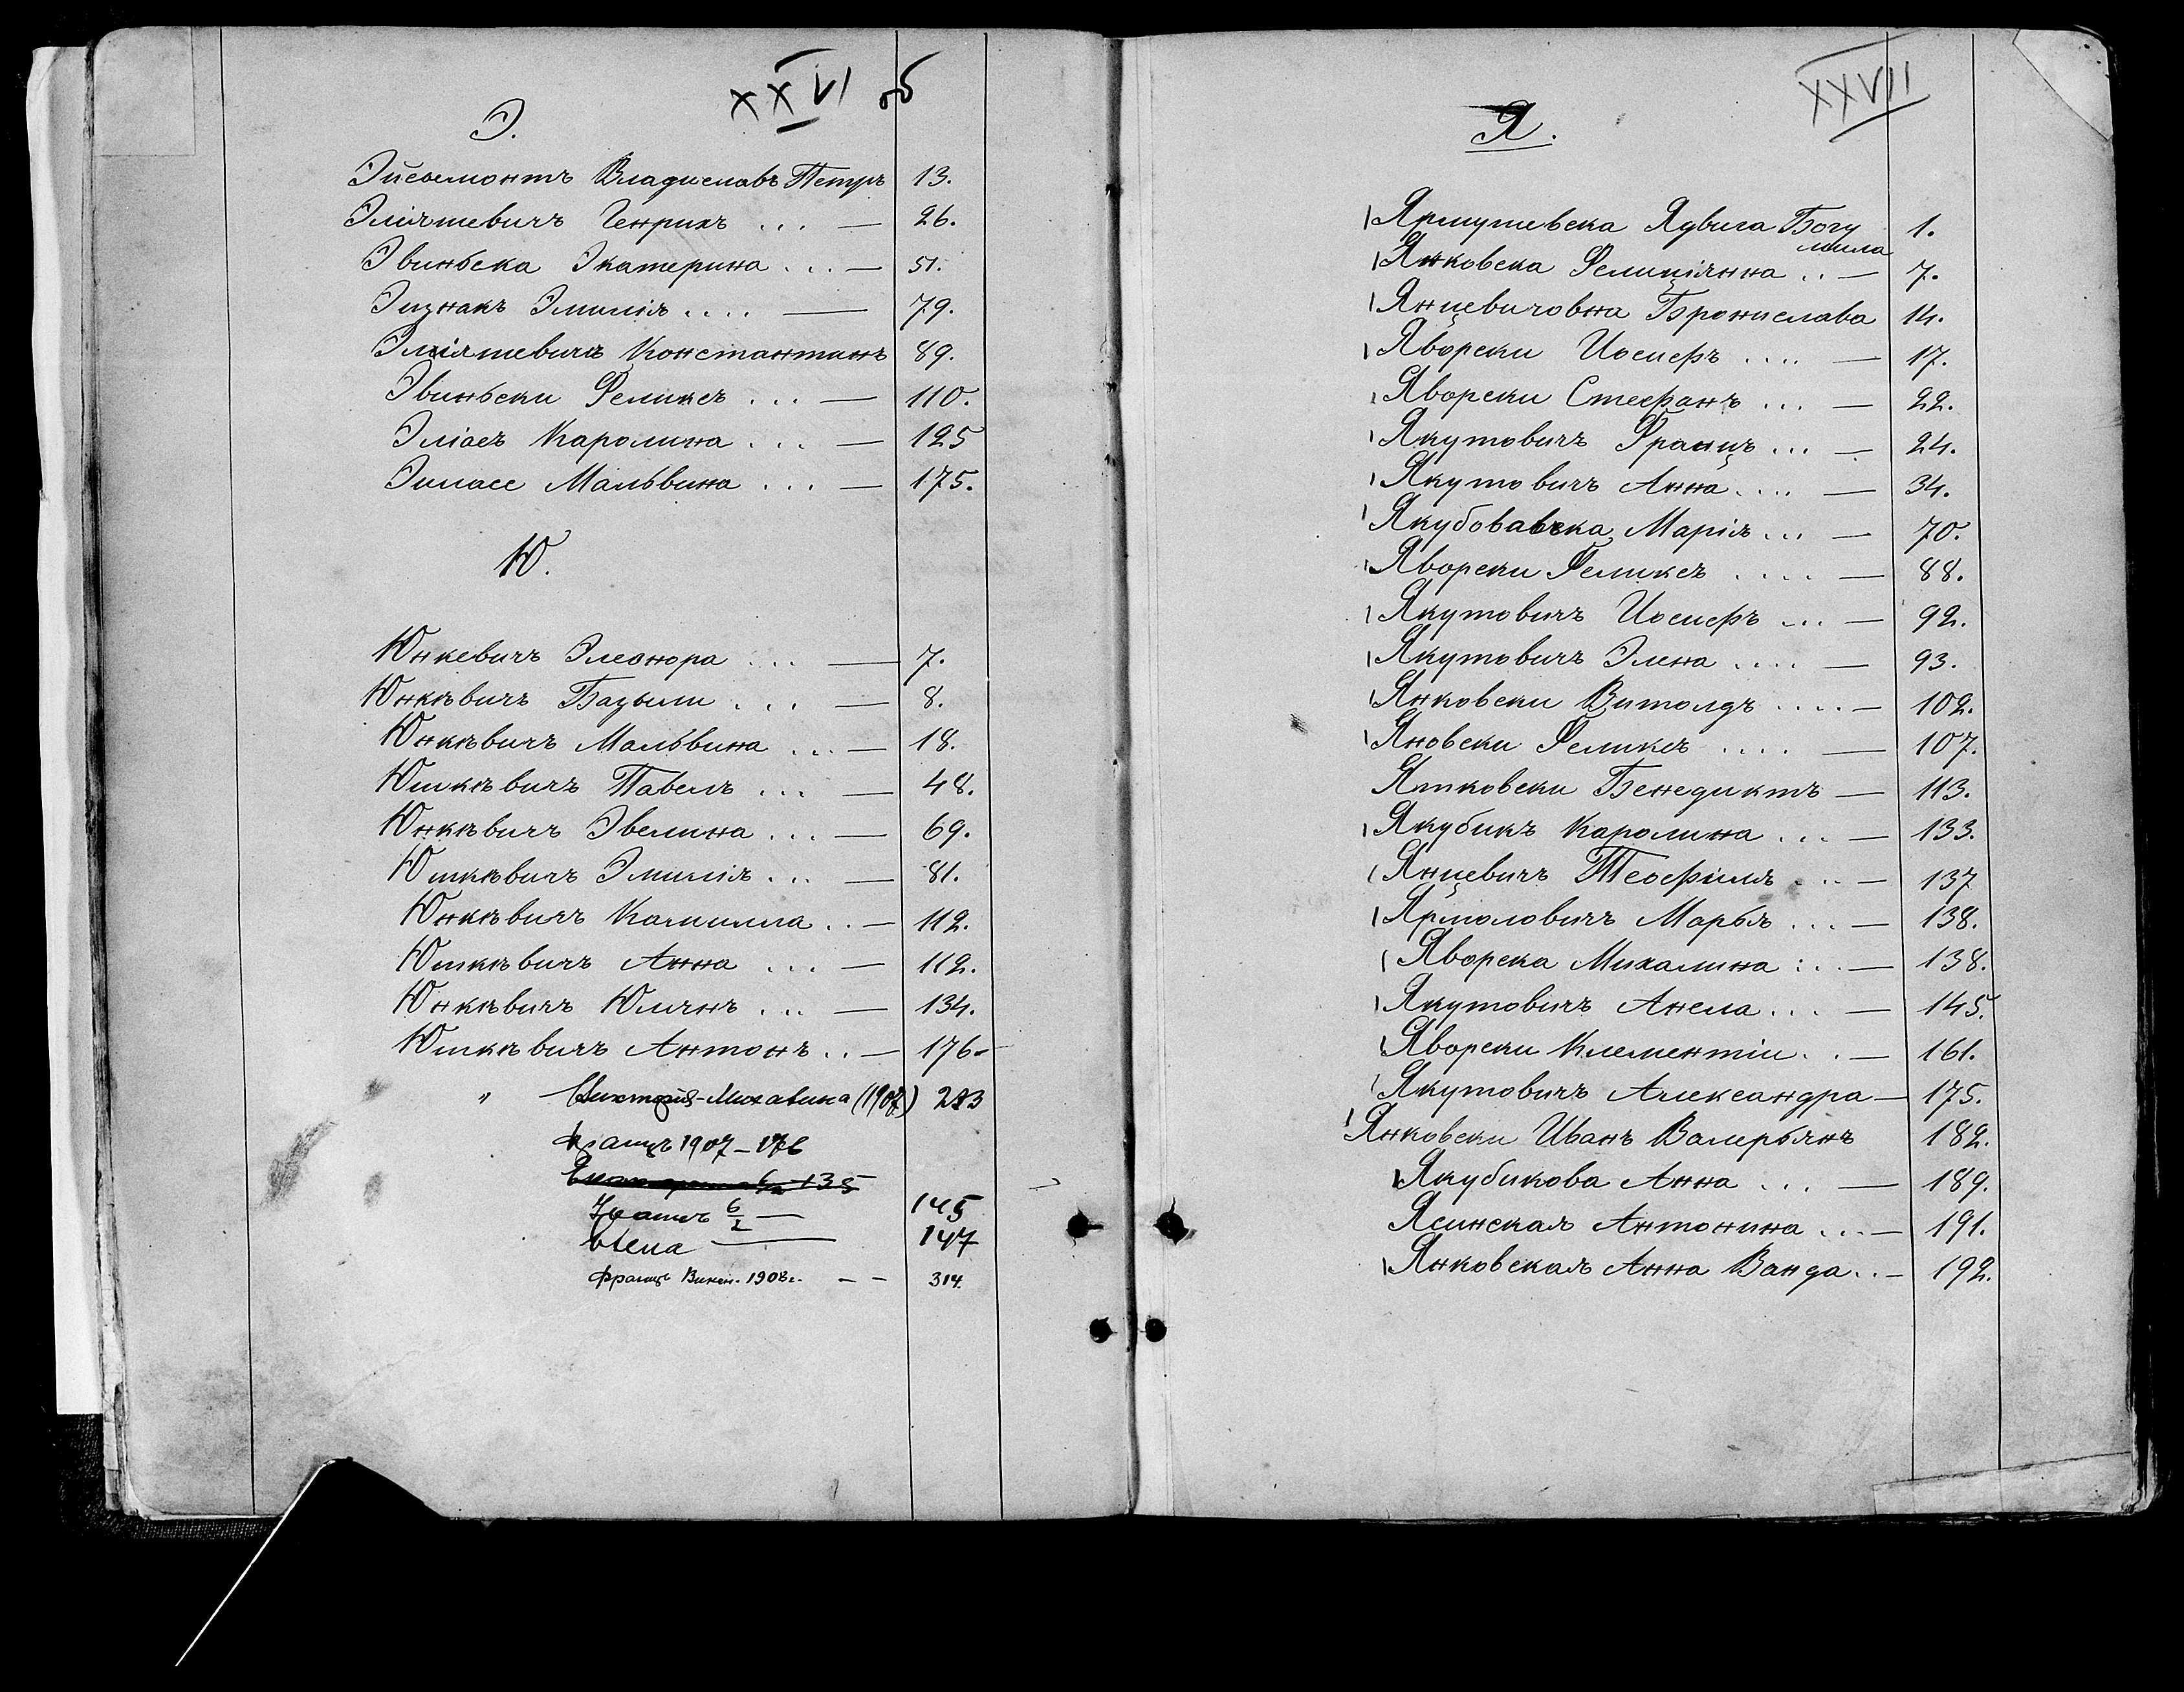 XXVI об
Э.
Эйсымонтъ Владиславъ Петръ 13.
Эліяшевичъ Генрихъ ... — 26.
Эвинбека Экатерина ... — 51.
Эизнакъ Эмилія .... — 79.
Эліяшевичъ Константинъ 89.
Эвинбски Феликсъ ... — 110.
Эліасъ Каролина ... — 125
Эиласс Мальвина ... — 175.
Ю.
Юнкевичъ Элеонора ... — 7.
Юнкѣвичъ Базыли ... — 8.
Юнкѣвичъ Мальвина ... — 18.
Юшкѣвичъ Павелъ ... — 48.
Юнкѣвичъ Эвелина ... — 69.
Юшкѣвичъ Эмилія ... — 81.
Юнкѣвичъ Камилла .. — 112.
Юшкѣвичъ Анна ... — 112.
Юнкѣвичъ Юлянъ ... — 134.
Юшкѣвичъ Антонъ .. — 176
" Викторія-Михалина (1907) 223
Францъ 1907 – 176
135
6/2 — 145
Елена — 147
Францъ Викен. 1908 г. — — 314.
XXVII
Я.
Ярмушевска Ядвига Богу 1.
мила
Янковска Фелиціянна .. — 7.
Янцевичовна Бронислава 14.
Яворски Иосифъ .... — 17.
Яворски Стефанъ ... — 22.
Якутовичъ Францъ ... — 24.
Якутовичъ Анна .... — 34.
Якубовавска Марія ... — 70.
Яворски Феликсъ .... — 88.
Якутовичъ Иосифъ ... — 92.
Якутовичъ Элена .... — 93.
Янковски Витолдъ .... — 102.
Яновски Феликсъ .... — 107.
Ятковски Бенедиктъ — 113.
Якубикъ Каролина ... — 133.
Янцевичъ Теофиля ... — 137
Ярмоловичъ Марья ... — 138.
Яворска Михалина ... — 138.
Якутовичъ Анеля ... — 145.
Яворски Клементіи .. — 161.
Якутовичъ Александра — 175.
Янковски Иванъ Валерьянъ 182.
Якубикова Анна ... — 189.
Ясинская Антонина ... — 191.
Янковская Анна Ванда .. — 192.